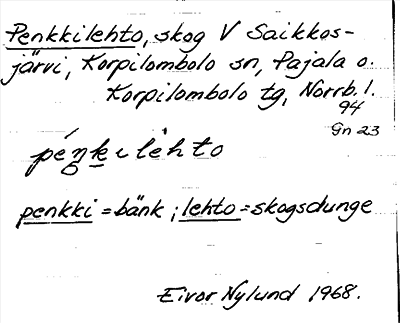 Penkkilehto, skog V Saikkos-
järvi, Korpilombolo sn, Pajala o.
Korpilombolo tg, Norrb. l.
94
Gn 23
péŋkilehto
penkki = bänk ; lehto = skogsdunge
Eivor Nylund 1968.